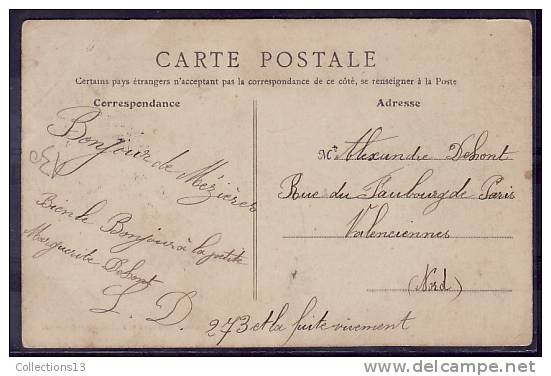 CARTE POSTALE
Certains pays étrangers n'acceptant pas la correspondance de ce côté, se renseigner à la Poste
Correspondance
Bonjour de Mézières
Bien le Bonjour à la petite
Marguerite Dehont
L. D.
273 et la suite vivement
Adresse
Mr Alexandre Dehont
Rue du Faubourg de Paris
Valenciennes
(Nord)
Collections13
www.delcampe.net